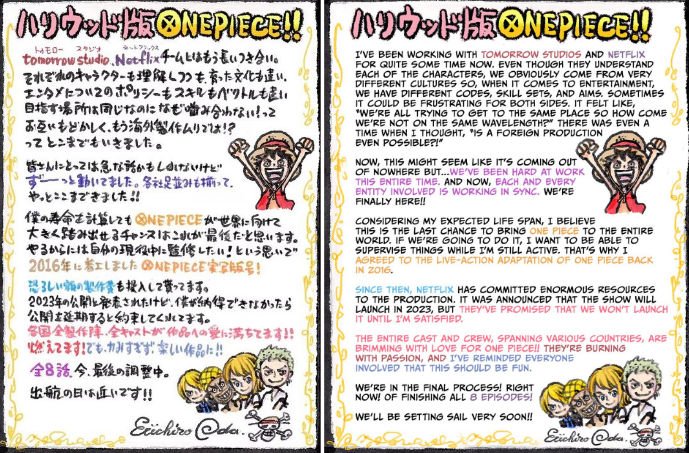 ハリウッド版 ONEPIECE!!
トゥモロー スタジオ ネットフリックス
tomorrow studio、Netflixチームとはもう長いつき合い。
それぞれのキャラクターも理解しつつも、育った文化も違い、
エンタメについてのポリシーもスキルもベクトルも違い
目指す場所は同じなのになぜ噛み合わない!って
お互いもどかしく、もう海外製作ムリでは!?
ってとこまでもいきました。
皆さんにとっては急な話かもしれないけど
ずーーっと動いてました。各社足並みも揃って、
やっとここまできました!!
僕の寿命を計算しても ONEPIECEが世界に向けて
大きく踏み出せるチャンスはこれが最後だと思います。
やるからには自分の現役中に監修したい!という思いで
2016年に着工しました ONEPIECE実写版号!
恐ろしい額の製作費も投入して貰ってます。
2023年の公開と発表されたけど、僕が納得できなかったら
公開を延期すると約束してくれてます。
各国全製作陣、全キャストが作品への愛に満ちてます!!
燃えてます!でも、力みすぎず、楽しい作品に!!
全8話、今、最後の調整中。
出航の日は近いです!!
Eiichiro Oda.
ハリウッド版 ONEPIECE!!
I'VE BEEN WORKING WITH TOMORROW STUDIOS AND NETFLIX
FOR QUITE SOME TIME NOW. EVEN THOUGH THEY UNDERSTAND
EACH OF THE CHARACTERS, WE OBVIOUSLY COME FROM VERY
DIFFERENT CULTURES SO, WHEN IT COMES TO ENTERTAINMENT,
WE HAVE DIFFERENT CODES, SKILL SETS, AND AIMS. SOMETIMES
IT COULD BE FRUSTRATING FOR BOTH SIDES. IT FELT LIKE,
"WE'RE ALL TRYING TO GET TO THE SAME PLACE SO HOW COME
WE'RE NOT ON THE SAME WAVELENGTH?" THERE WAS EVEN A
TIME WHEN I THOUGHT, "IS A FOREIGN PRODUCTION
EVEN POSSIBLE?!"
NOW, THIS MIGHT SEEM LIKE IT'S COMING OUT
OF NOWHERE BUT...WE'VE BEEN HARD AT WORK
THIS ENTIRE TIME. AND NOW, EACH AND EVERY
ENTITY INVOLVED IS WORKING IN SYNC. WE'RE
FINALLY HERE!!
CONSIDERING MY EXPECTED LIFE SPAN, I BELIEVE
THIS IS THE LAST CHANCE TO BRING ONE PIECE TO THE ENTIRE
WORLD. IF WE'RE GOING TO DO IT, I WANT TO BE ABLE TO
SUPERVISE THINGS WHILE I'M STILL ACTIVE. THAT'S WHY I
AGREED TO THE LIVE-ACTION ADAPTATION OF ONE PIECE BACK
IN 2016.
SINCE THEN, NETFLIX HAS COMMITTED ENORMOUS RESOURCES
TO THE PRODUCTION. IT WAS ANNOUNCED THAT THE SHOW WILL
LAUNCH IN 2023, BUT THEY'VE PROMISED THAT WE WON'T LAUNCH
IT UNTIL I'M SATISFIED.
THE ENTIRE CAST AND CREW, SPANNING VARIOUS COUNTRIES, ARE
BRIMMING WITH LOVE FOR ONE PIECE!! THEY'RE BURNING
WITH PASSION, AND I'VE REMINDED EVERYONE
INVOLVED THAT THIS SHOULD BE FUN.
WE'RE IN THE FINAL PROCESS! RIGHT
NOW! OF FINISHING ALL 8 EPISODES!
WE'LL BE SETTING SAIL VERY SOON!!
Eiichiro Oda.